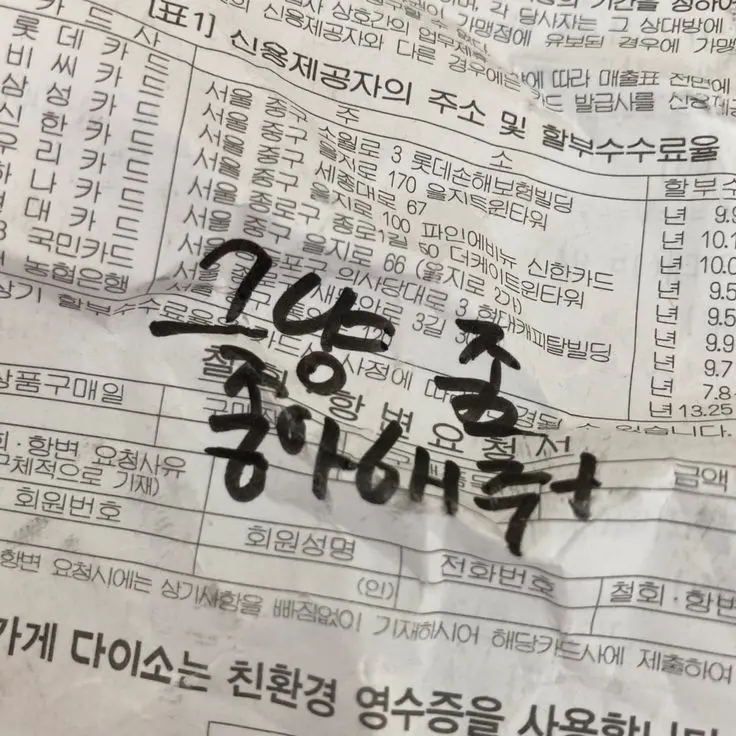 [표1] 신용제공자의 주소 및 할부수수료율
카드사
주 소
할부수
롯데카드
서울 중구 소월로 3 롯데손해보험빌딩
년 9.9
비씨카드
서울 중구 을지로 170 을지트윈타워
년 10.1
삼성카드
서울 중구 세종대로 67
년 10.0
신한카드
서울 중구 을지로 100 파인에비뉴 신한카드
년 9.5
우리카드
서울 종로구 종로1길 50 더케이트윈타워
년 9.5
하나카드
서울 중구 을지로 66 (을지로 2가)
년 9.9
현대카드
의사당대로 3 현대캐피탈빌딩
년 9.7
국민카드
3길 30
년 7.8
농협은행
년 13.25
그냥 좀
좋아해줘
상품구매일
금액
회·항변 요청사유
구체적으로 기재)
회원번호
회원성명
(인)
전화번호
철회·항변
항변 요청시에는 상기사항을 빠짐없이 기재하시어 해당카드사에 제출하여
가게 다이소는 친환경 영수증을 사용합니다